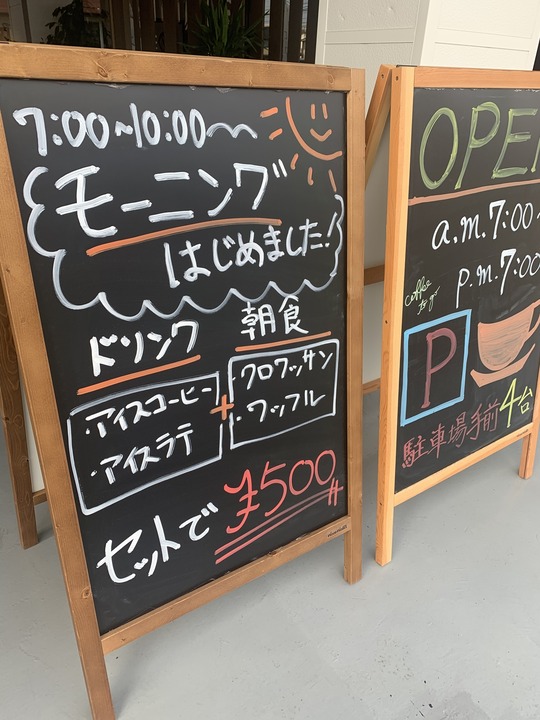 7:00~10:00~
モーニング
はじめました!
ドリンク
・アイスコーヒー
・アイスラテ
+
朝食
・クロワッサン
・ワッフル
セットで ¥500
OPEN
a.m.7:00~
p.m.7:00
coffee
to go
P
駐車場手前4台